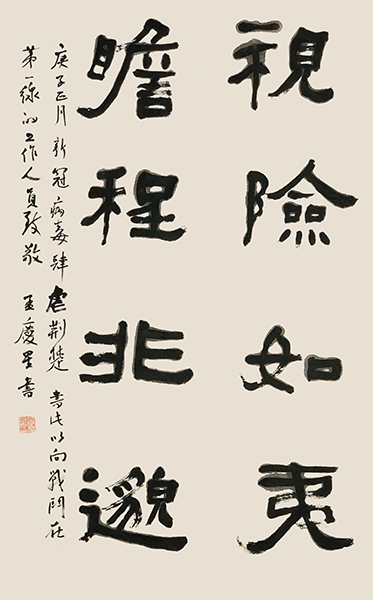 視險如夷
瞻程非邈
庚子正月新冠病毒肆虐荆楚書此以向戰鬥在
第一線的工作人員致敬 慶星書